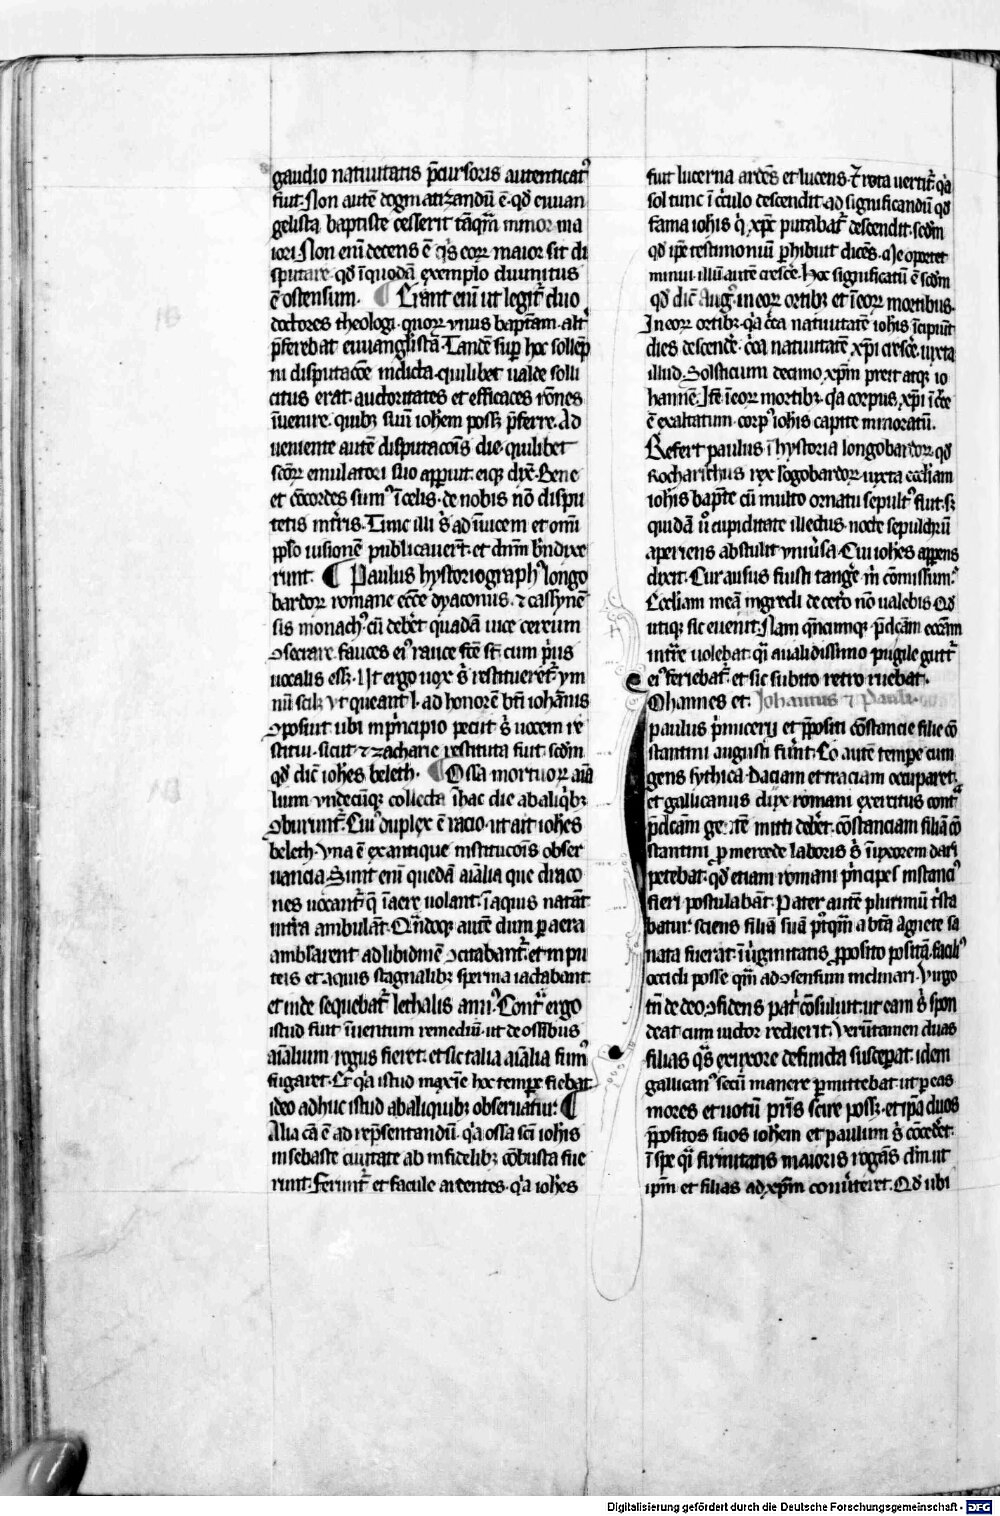 gaudio natiuitatis p̄cursoris autenticatꝰ
fuit. Non autē dogmatizandū ē. qd̄ euuan
gelista baptiste cesserit tāqm̄ minor ma
iori. Non enī decens ē qͥs eoꝝ maior sit di
sputare. qd̄ īquodā exemplo diuinitus
ē ostensum. ¶ Erant enī ut legit᷑ duo
doctores theologi. quoꝝ vnus baptam. altꝰ
p̄ferebat euuanglistā. Tandē suꝑ hoc sollēp
ni disputacōe indicta. quilibet ualde solli
citus erat. auctoritates et efficaces rōnes
īuenire. quibꝫ suū iohem possꝫ p̄ferre. Ad
ueniente autē disputacōis die. quilibet
scōꝝ emulatori suo apparuit. eiqꝫ dix̄. Bene
et cōcordes sumꝰ ī celis. de nobis nō dispu
tetis ī tr̄ris. Tunc illi sͥ ad īuicem et omī
pplo uisionē publicauer̄t. et dn̄m bn̄dixe
runt. ¶ Paulus hystoriographꝰ longo
bardoꝝ romane eccē dyaconus. ⁊ cassynē
sis monachꝰ. cū deb̄et quadā uice cereum
ꝯsecrare. fauces eiꝰ rauce fc̄e st̄. cum pͥus
uocalis essꝫ. Ut ergo uox sͥ restitueret᷑. ym
nū scilꝫ vt queant l. ad honorē bt̄i iohānis
ꝯposuit ubi ī pͥncipio petit sͥ uocem re
stitui. sicut ⁊ zacharie restituta fuit. scdm
qd̄ dic̄ ioh̄es beleth. ¶ Ossa mortuoꝝ aīa
lium vndecūqꝫ collecta ī hac die abaliqͥbꝫ
ꝯburunt᷑. Cuiꝰ duplex ē racio. ut ait ioh̄es
beleth. Vna ē ex antique institucōis obser
uancia. Sunt enī quedā aīalia que draco
nes uocant᷑. q̄ ī aere uolant. ī aquis natāt
ī terra ambulāt. Qn̄doqꝫ autē dum ꝑ aera
ambularent ad libidinē ꝯcitabant᷑. et in pu
teis et aquis stagnalibꝫ sperma iactabant.
et inde sequebat᷑ lethalis annꝰ. Contᷓ ergo
istud fuit īuentum remediū. ut de ossibus
aīalium rogus fieret. et sic talia aīalia fumꝰ
fugaret. Et qͣ istud maxīe hoc tempe fiebat
ideo adhuc istud abaliquibꝫ obseruatur. ¶
Alia cā ē ad rep̄sentandū. qͣ ossa sci ioh̄is
in sebaste ciuitate ab infidelibꝫ cōbusta fue
runt. Ferunt᷑ et facule ardentes. qͣ ioh̄es
fuit lucerna ardēs et lucens. ⁊ rota uertit᷑. qͣ
sol tunc ī cͥculo descendit. ad significandū qd̄
fama ioh̄is qͥ xp̄c putabat᷑ descendit. scdm
qd̄ ip̄e testimoniū ꝑhibuit dicēs. Me oportet
minui. illū autē cresc̄e. Hoc significatū ē scdm
qd̄ dic̄ Augꝰ. in eoꝝ ortibꝫ et ī eoꝝ mortibus.
In eoꝝ ortibꝫ. qͣ cͣca natiuitatē ioh̄is īcipiūt
dies descend̄e. cͣca natiuitatē xp̄i cresc̄e. iuxta
illud. Solsticium decimo xp̄m preit atqꝫ io
hannē. Itē ī eoꝝ mortibꝫ. qͣ corpus xp̄i ī cͣce
ē exaltatum. corpꝰ ioh̄is capite minoratū.
Refert paulus ī hystoria longobardoꝝ. qd̄
Rocharithus rex lōgobardoꝝ iuxta eccliam
ioh̄is bapt̄e cū multo ornatu sepultꝰ fuit. sꝫ
quidā ū cupiditate illectus. nocte sepulchrū
aperiens abstulit vniūsa. Cui ioh̄es apparens
dixit. Cur ausus fuisti tanḡe m̄ cōmissum.
Eccliam meā ingredi de cet̄o nō ualebis. Qd̄
utiqꝫ sic euenit. Nam qn̄cumqꝫ p̄dcām ecclāṁ
intr̄re uolebat. qͥ aualidissimo pugile gutt᷑
eiꝰ feriebat᷑. et sic subito retro ruebat.
Iohannes et Iohannis ⁊ Pauli.
paulus pͥmicerij et p̄positi cōstancie filie cō
stantini augusti fuer̄t. Eo autē tempe cum
gens sythica daciam et traciam occuparet.
et gallicanus dux romani exercitus contᷓ
p̄dcām gentē mitti deb̄et. cōstanciam filiā cō
stantini ꝓ mercede laboris sͥ ī uxorem dari
petebat. qd̄ etiam romani pͥncipes instanciꝰ
fieri postulabāt. Pater autē plurimū tͥsta
batur. sciens filiā suā ptͥqm̄ a btā Agnete sa
nata fuerat. ī uͥginitatis ꝓposito positā. faciliꝰ
occidi posse qm̄ ad ꝯsensum inclinari. Virgo
tn̄ de deo ꝯfidens patͥ cōsuluit. ut eam sͥ spon
deat. cum uictor redierit. Verūtamen duas
filias qͣs ex uxore defuncta susceperat. idem
gallicanꝰ secū manere ꝑmittebat. ut ꝑ eas
mores et uotū prīs scire possꝫ. et ip̄a duos
p̄positos suos ioh̄em et paulum sͥ cōced̄et.
ī spe qͥ firmitatis maioris rogās dn̄m. ut
ipm̄ et filias ad xp̄m conūteret. Qd̄ ubi
Digitalisierung gefördert durch die Deutsche Forschungsgemeinschaft - DFG